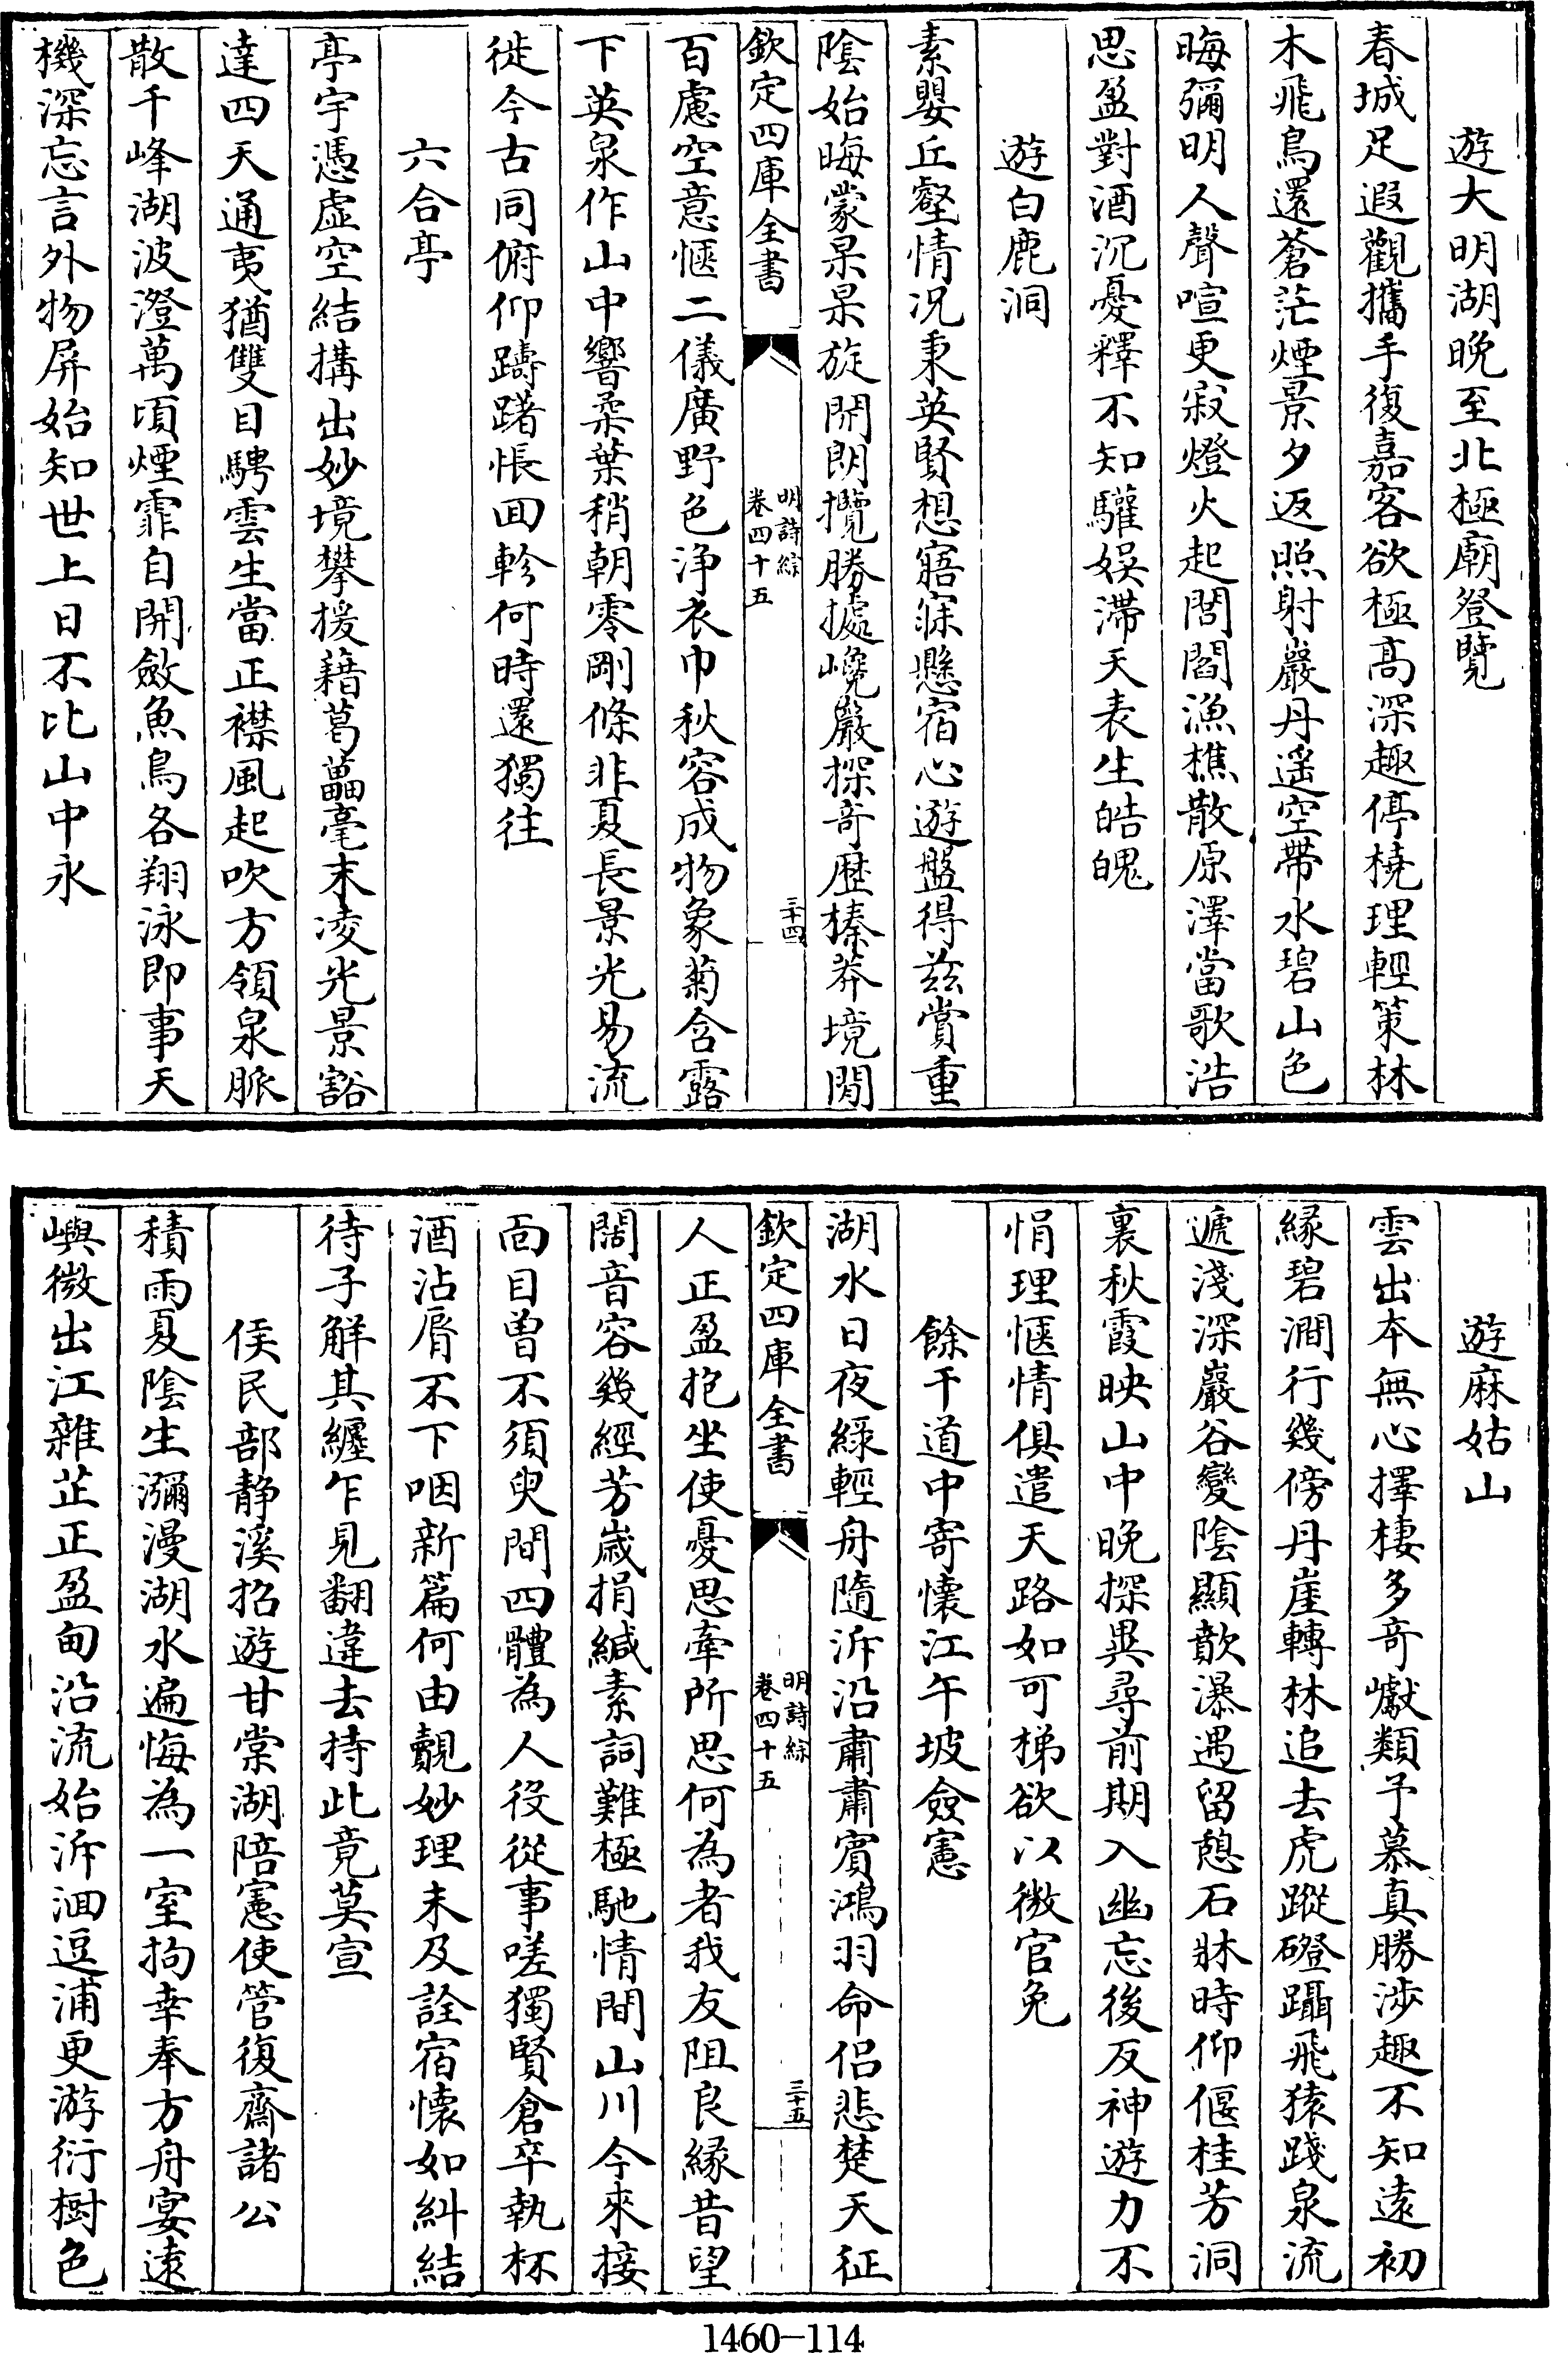 遊大明湖晚至北極廟登覽
春城足遐觀攜手復嘉客欲極高深趣停橈理輕策林
木飛鳥還蒼茫煙景夕返照射巖丹遥空帶水碧山色
晦彌明人聲喧更寂燈火起閭閻漁樵散原澤當歌浩
思盈對酒沉憂釋不知驩娱滯天表生皓魄
遊白鹿洞
素嬰丘壑情况秉英賢想寤寐懸宿心遊盤得兹賞重
陰始晦蒙杲杲旋開朗攬勝據巉巖探奇歴榛莽境閒
欽定四庫全書
明詩綜
卷四十五
三十四
百慮空意愜二儀廣野色浄衣巾秋容成物象菊含露
下英泉作山中響柔葉稍朝零剛條非夏長景光易流
徙今古同俯仰躊躇悵回軫何時還獨往
六合亭
亭宇憑虚空結搆出妙境攀援藉葛藟毫末凌光景豁
達四天通夷猶雙目騁雲生當正襟風起吹方領泉脈
散千峰湖波澄萬頃煙霏自開斂魚鳥各翔泳即事天
機深忘言外物屏始知世上日不比山中永
遊麻姑山
雲出本無心擇棲多奇巘類予慕真勝涉趣不知遠初
緣碧澗行幾傍丹崖轉林追去虎蹤磴躡飛猿踐泉流
遞淺深巖谷變陰顯歕瀑遇留憩石牀時仰偃桂芳洞
裏秋霞映山中晚探異尋前期入幽忘後反神遊力不
悁理愜情俱遣天路如可梯欲以微官免
餘干道中寄懷江午坡僉憲
湖水日夜緑輕舟隨泝沿肅肅賓鴻羽命侣悲楚天征
欽定四庫全書
明詩綜
卷四十五
三十五
人正盈抱坐使憂思牽所思何為者我友阻良緣昔望
闊音容幾經芳歲捐緘素詞難極馳情間山川今來接
面目曾不須臾間四體為人役從事嗟獨賢倉卒執杯
酒沾脣不下咽新篇何由覿妙理未及詮宿懷如糾結
待子解其纏乍見翻違去持此竟莫宣
侯民部静溪招遊甘棠湖陪憲使管復齋諸公
積雨夏陰生瀰漫湖水遍悔為一室拘幸奉方舟宴遠
嶼微出江雜芷正盈甸沿流始泝洄逗浦更游衍樹色
1460-114